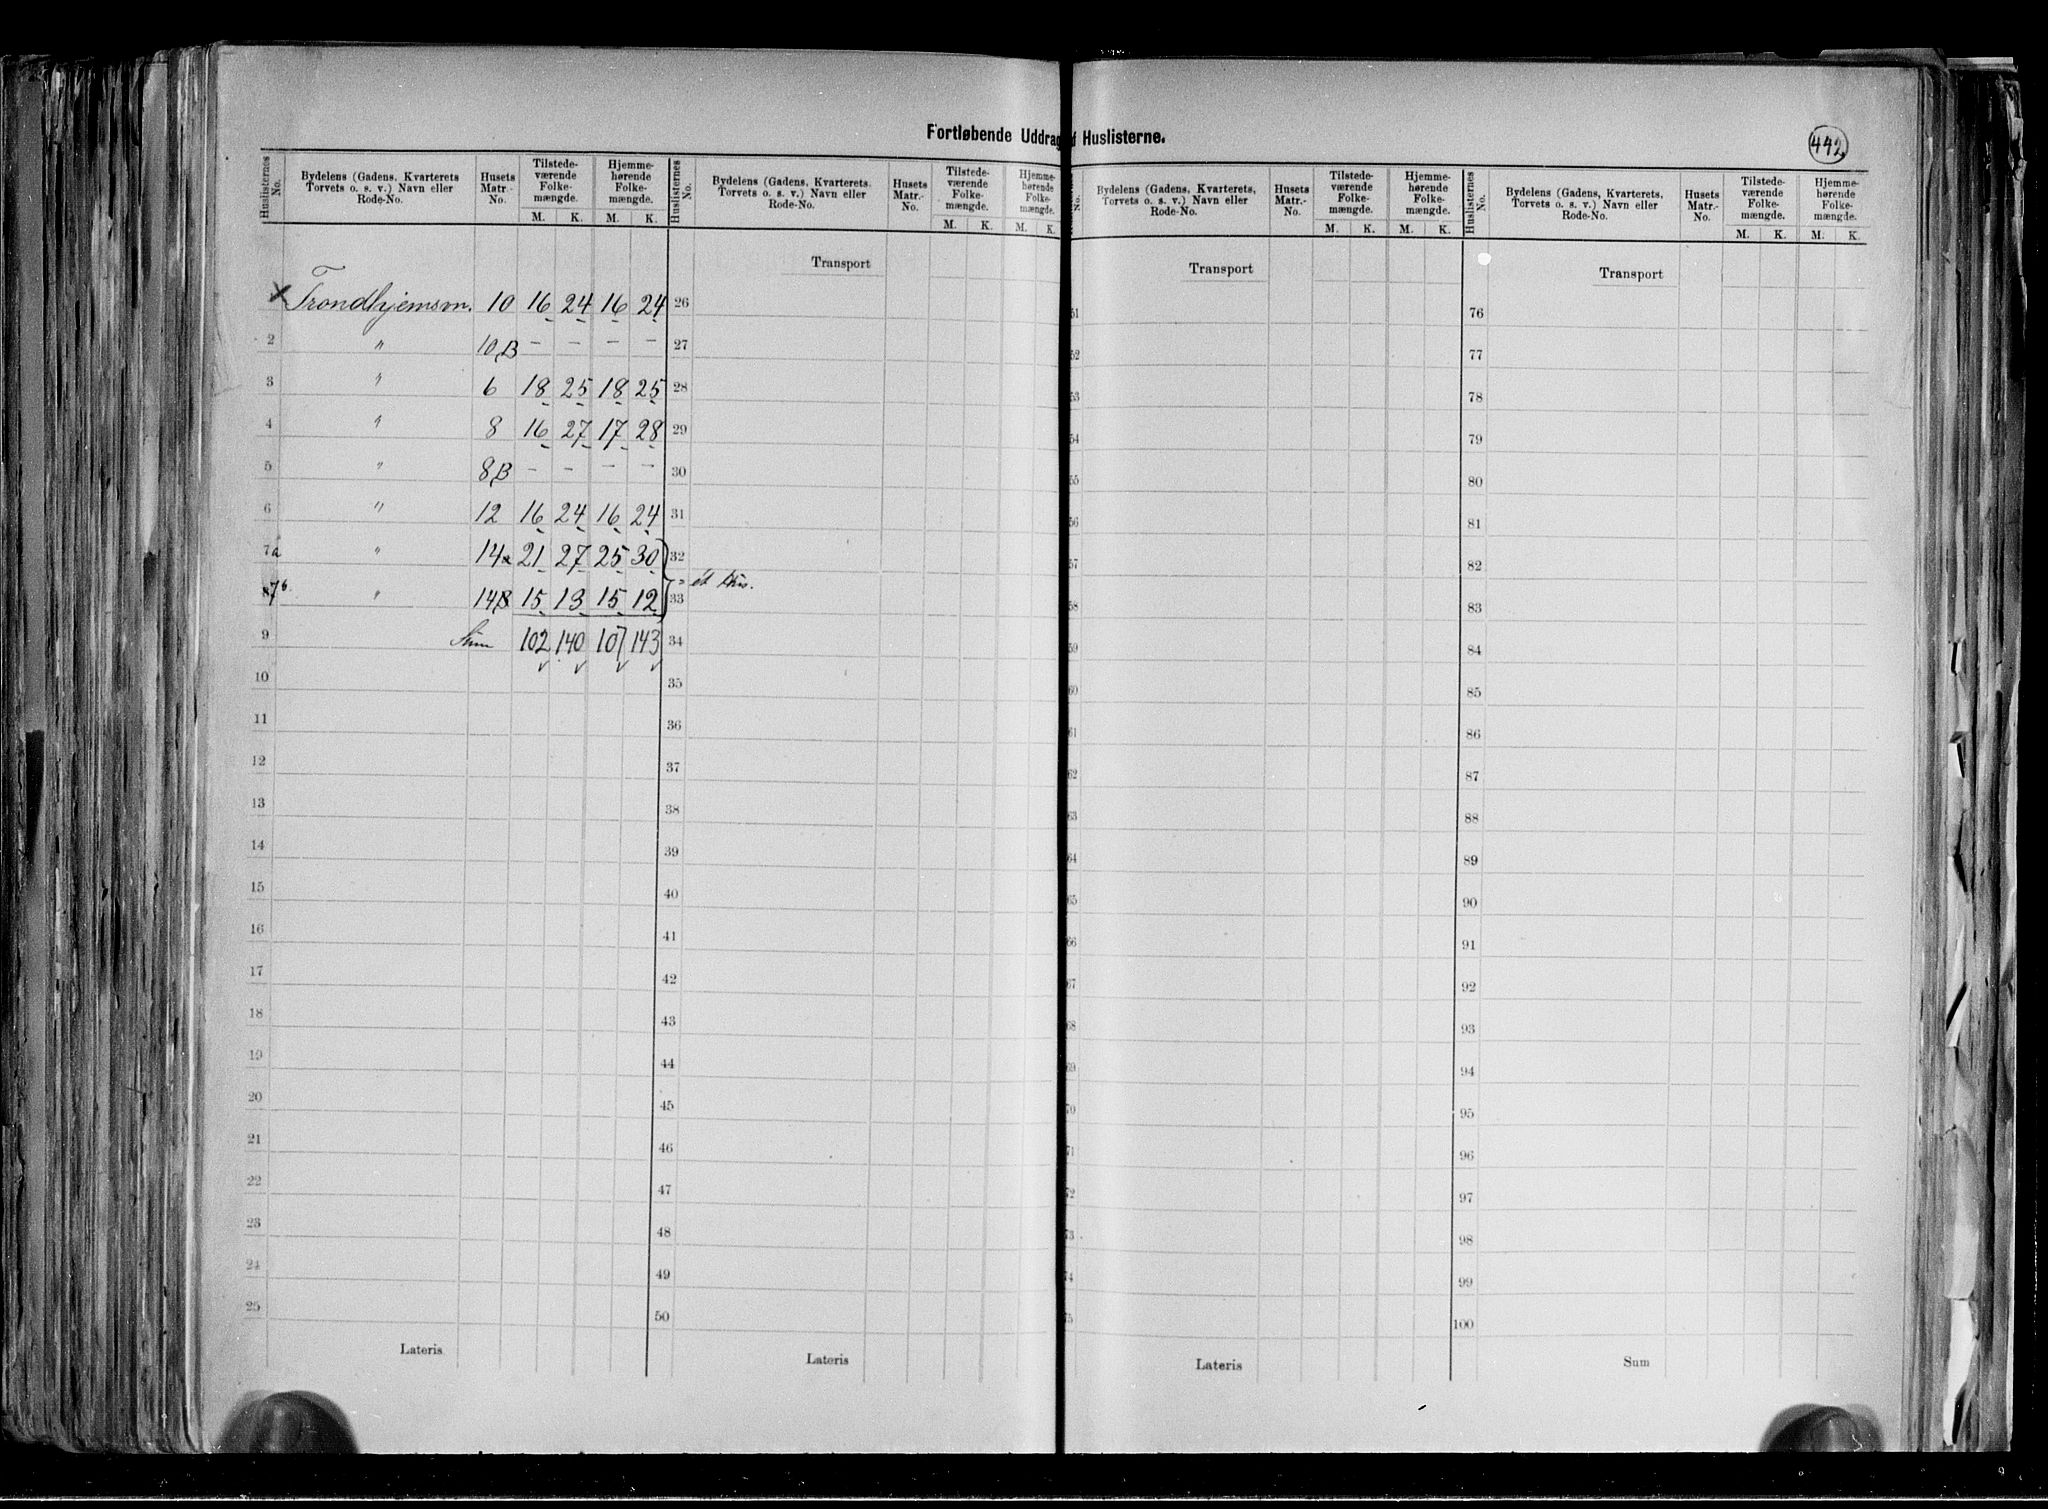 Fortløbende Uddrag af Huslisterne.
442
Huslisternes No. Bydelens (Gadens, Kvarterets Torvets o. s. v.) Navn eller Rode-No. Husets Matr.-No. Tilstede-værende Folke-mængde. M. K. Hjemme-hørende Folke-mængde. M. K.
Trondhjemsv. 10 16 24 16 24
2 " 10B – – – –
3 " 6 18 25 18 25
4 " 8 16 27 17 28
5 " 8B – – – –
6 " 12 16 24 16 24
7a " 14a 21 27 25 30
8 7b " 14B 15 13 15 12
= ét Hus.
9 Sum 102 140 107 143
10
11
12
13
14
15
16
17
18
19
20
21
22
23
24
25
Lateris
Huslisternes No. Bydelens (Gadens, Kvarterets, Torvets o. s. v.) Navn eller Rode-No. Husets Matr.-No. Tilstede-værende Folke-mængde. M. K. Hjemme-hørende Folke-mængde. M. K.
Transport
26
27
28
29
30
31
32
33
34
35
36
37
38
39
40
41
42
43
44
45
46
47
48
49
50
Lateris
No. Bydelens (Gadens, Kvarterets, Torvets o. s. v.) Navn eller Rode-No. Husets Matr.-No. Tilstede-værende Folke-mængde. M. K. Hjemme-hørende Folke-mængde. M. K.
Transport
51
52
53
54
55
56
57
58
59
60
61
62
63
64
65
66
67
68
69
70
71
72
73
74
75
Lateris
Huslisternes No. Bydelens (Gadens, Kvarterets, Torvets o. s. v.) Navn eller Rode-No. Husets Matr.-No. Tilstede-værende Folke-mængde. M. K. Hjemme-hørende Folke-mængde. M. K.
Transport
76
77
78
79
80
81
82
83
84
85
86
87
88
89
90
91
92
93
94
95
96
97
98
99
100
Sum